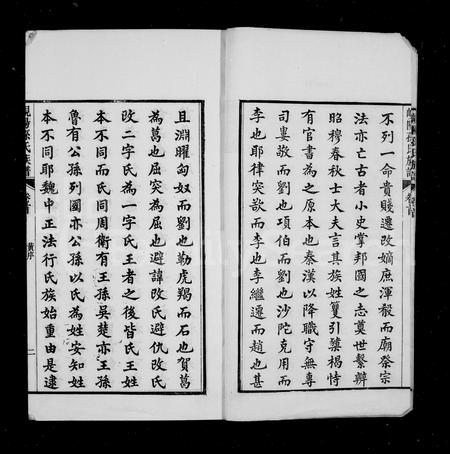 不列一命貴賤遷改嫡庶渾殽而廟祭宗
法亦亡古者小史掌邦國之志奠世繫辨
昭穆春秋士大夫言其族姓𨿽引
有官書為之原本也秦漢以降職守無專
司婁敬而劉也項伯而劉也沙陀克用而
李也耶律突欲而李也李繼遷而趙也甚
且淵曜匈奴而劉也勒虎羯而石也賀葛
為葛也屈突為屈也避諱改氏避仇改氏
改二字氏為一字氏王者之後皆氏王姓
本不同而氏同周衛有王孫吳楚亦王孫
魯有公孫列國亦公孫以氏為姓安知姓
本不同耶魏中正法行氏族始重由是逮
氏族譜
卷首
黃序
二